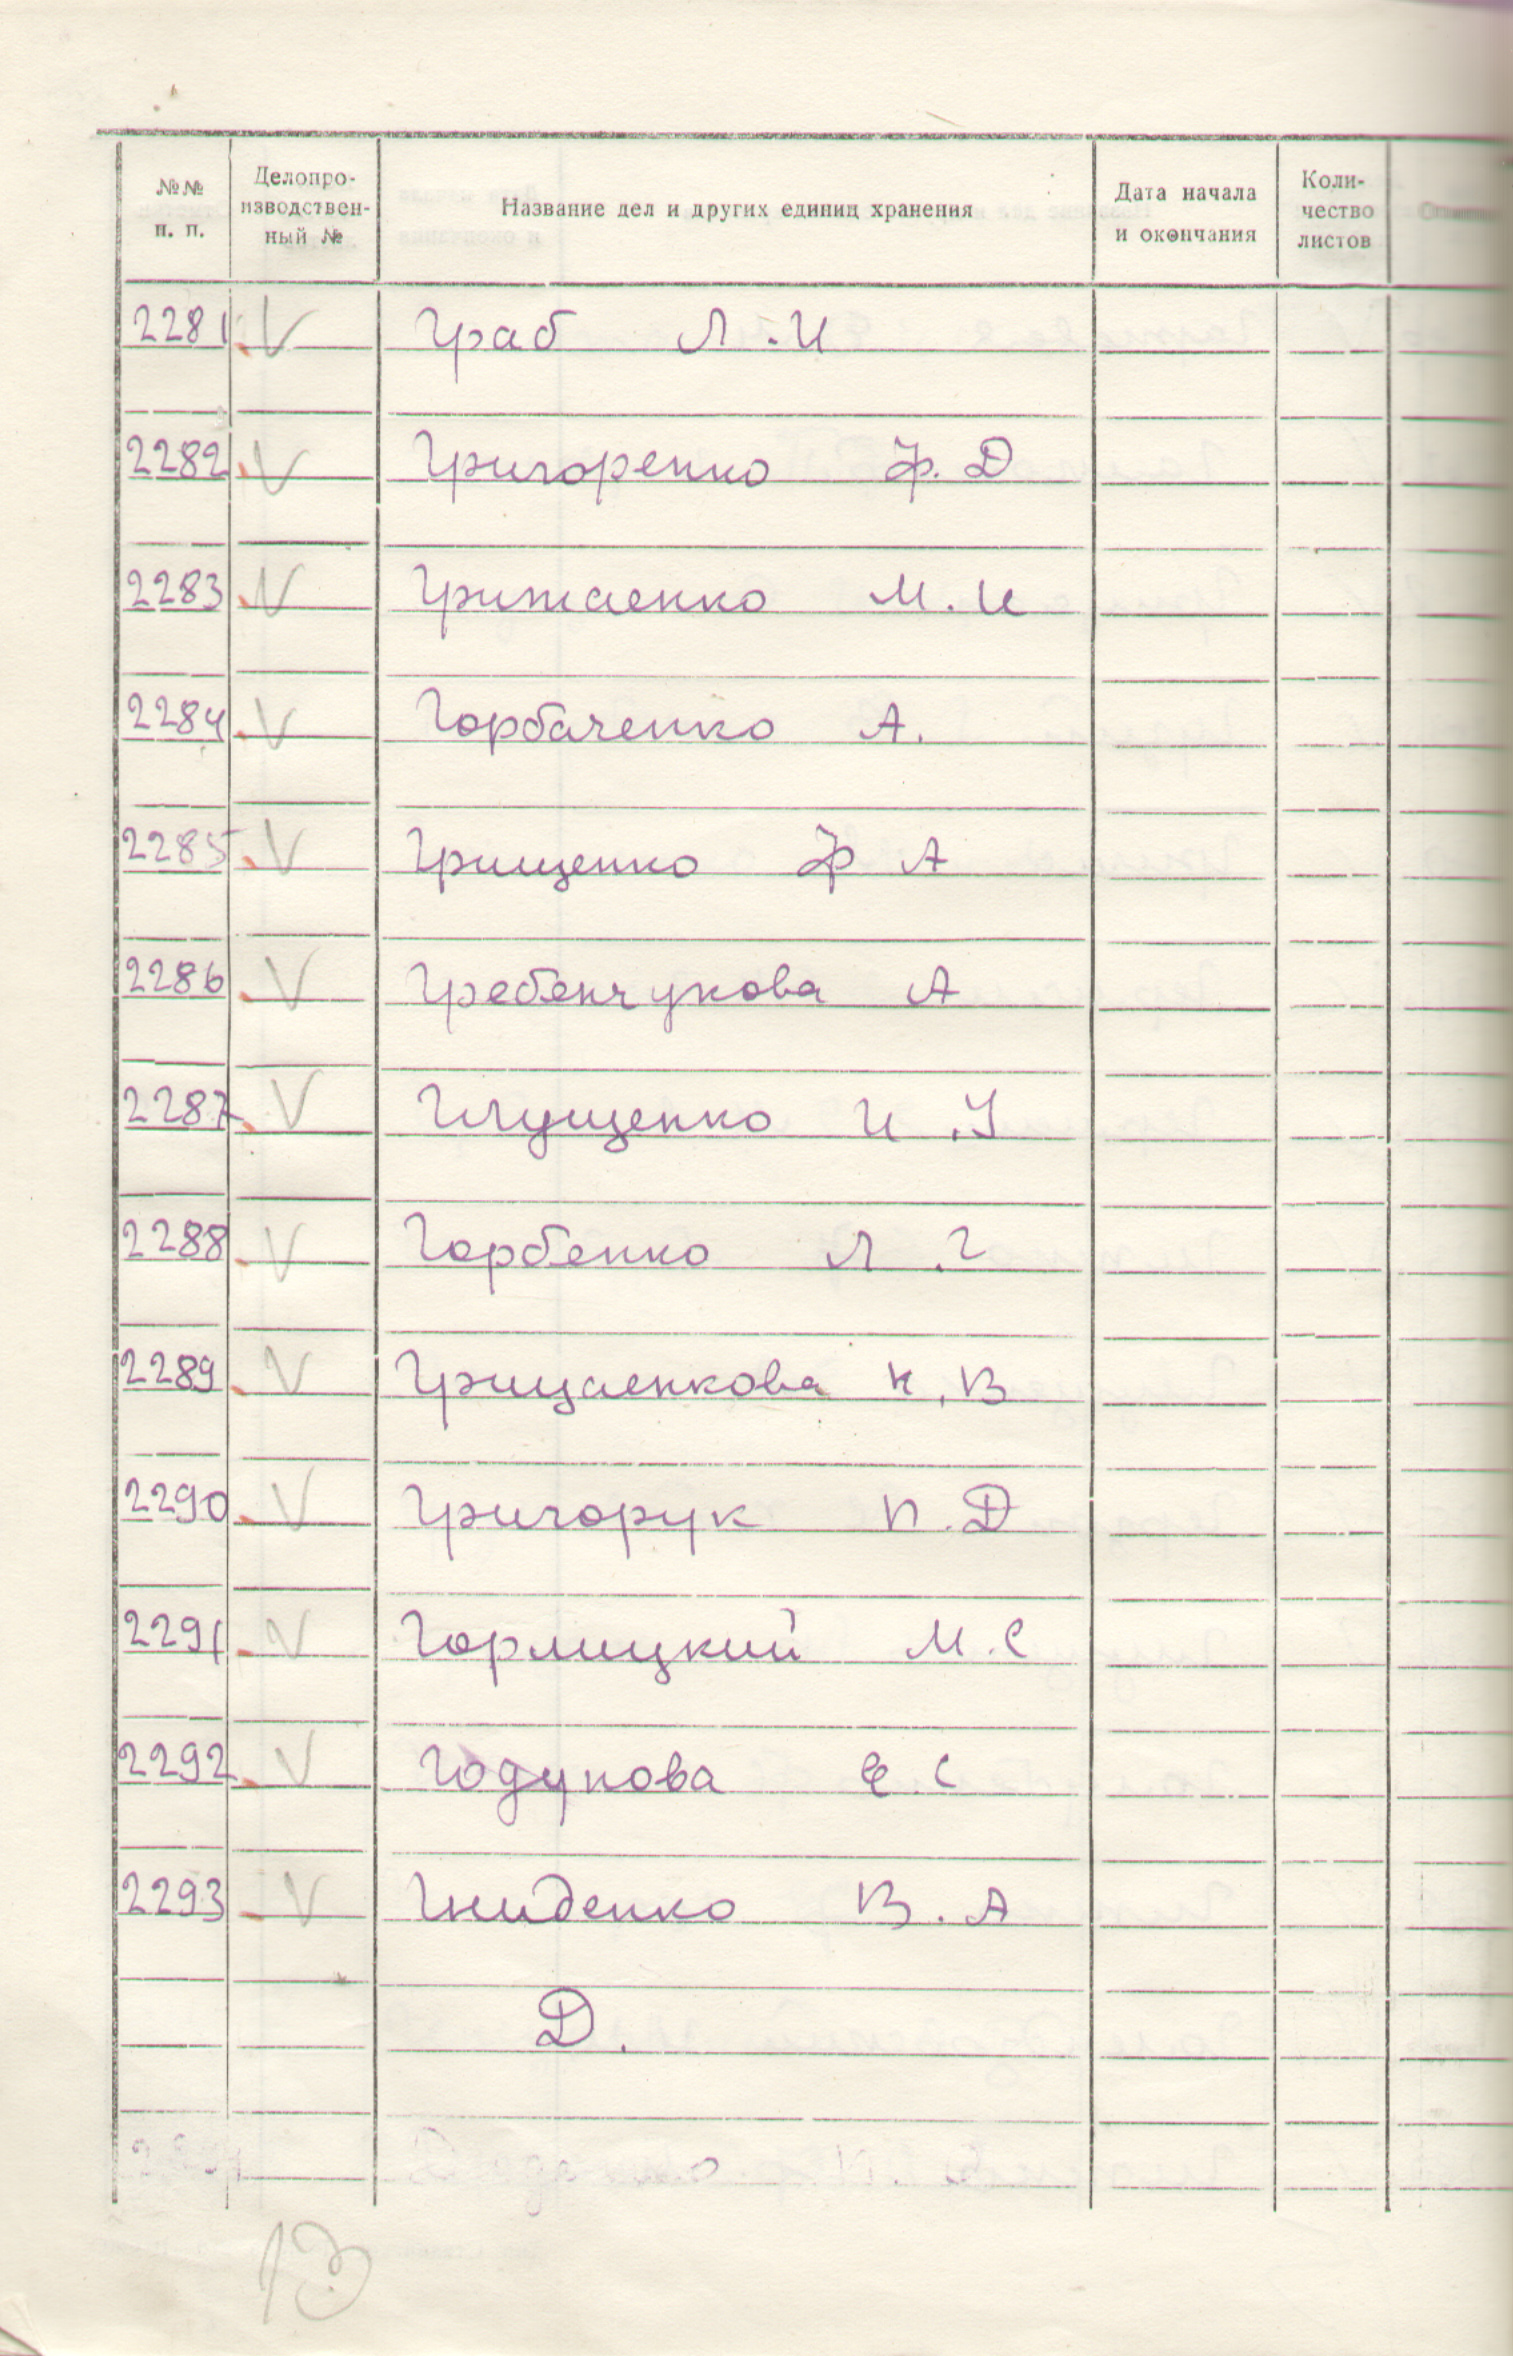 №№ п. п. Делопро-изводствен-ный № Название дел и других единиц хранения Дата начала и окончания Коли-чество листов
2281 V Граб Л.И
2282 V Григоренко Ф.Д
2283 V Гришаенко М.И
2284 V Горбаченко А.
2285 V Грищенко Ф А
2286 V Гребенчукова А
2287 V Глущенко И.У
2288 V Горбенко Л.Г
2289 V Грицаенкова Н.В
2290 V Григорук П.Д
2291 V Горлицкий М.С
2292 V Годунова Е.С
2293 V Гниденко В.А
Д.
13